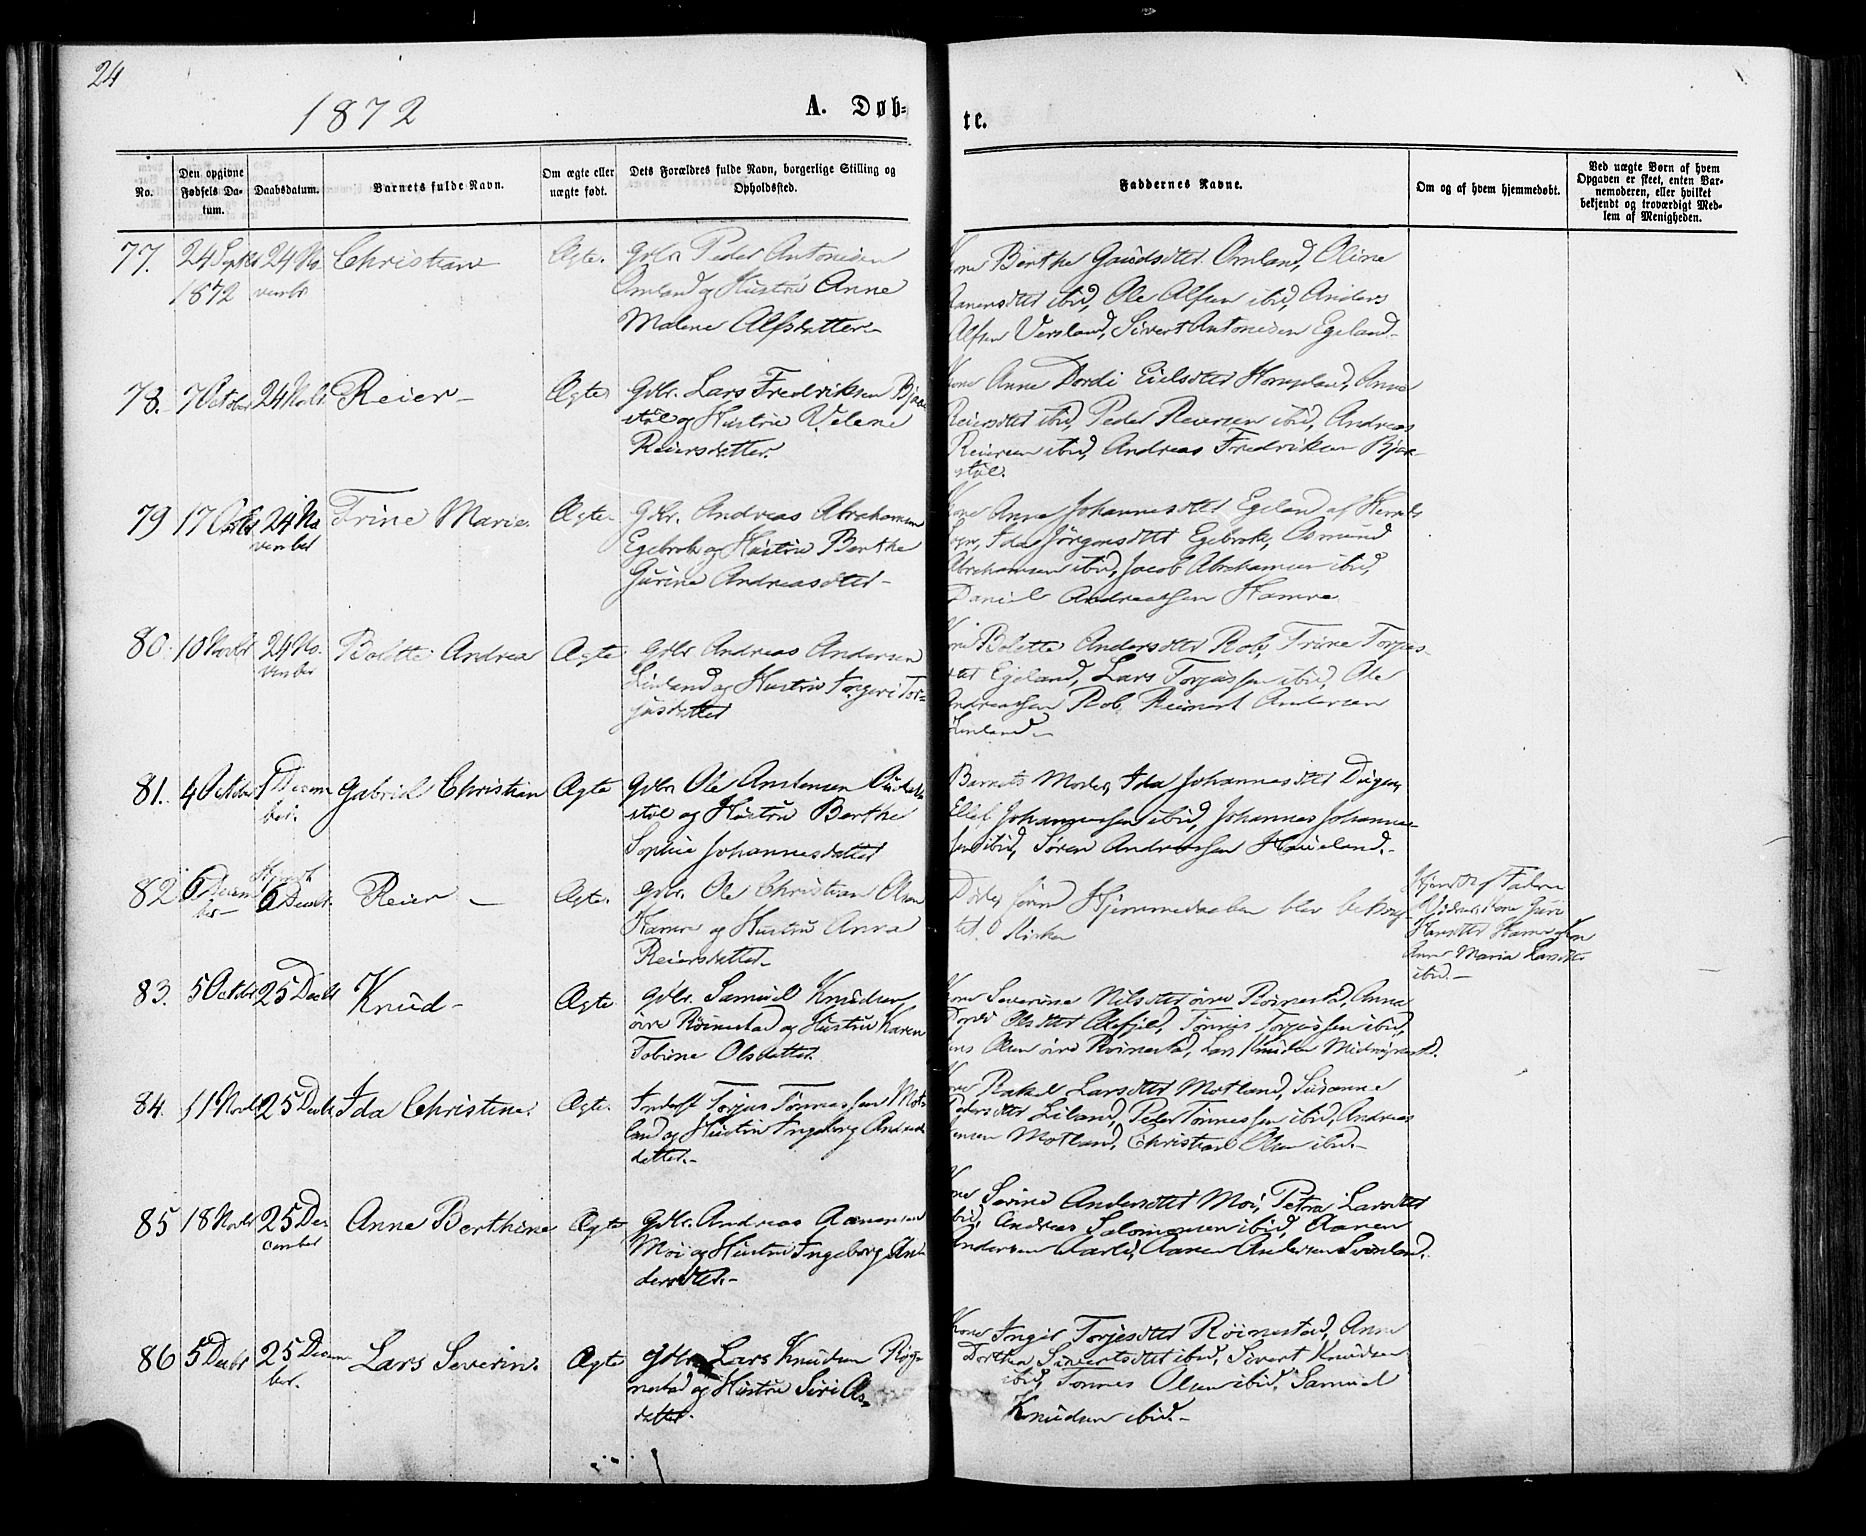 24
1872
A. Døb-
te.
No.
Den opgivne Fødsels Da-
tum.
Daabsdatum.
Barnets fulde Navn.
Om ægte eller
nægte født.
Dets Forældres fulde Navn, borgerlige Stilling og
Opholdssted.
Faddernes Navne.
Om og af hvem hjemmedøbt.
Ved uægte Børn af hvem
Opgaven er skeet, enten Bar-
nemoderen, eller hvilket
bekjendt og troværdigt Med-
lem af Menigheden.
77. 24 Septbr 24 No Christian Ægte. Gdbr Peder Antonisen
1872 vembr Omland og Hustru Anne
Malene Alfsdatter
Kone Berthe Omland, Oline
ibid, Ole Alfsen ibid, Anders
Alfsen Versland, Sivert Antonisen Egeland
78. 7 October 24 Novbr Reier Ægte Gdbr. Lars Fredriksen
støl og Hustru Velene
Reiersdatter.
Kone Anne Dordi Anne
Reiersdttr ibid, Peder Reiersen ibid, Andreas
Reiersen ibid, Andreas Fredriksen
støl.
79 17 Octbr 24 No Trine Marie. Ægte. Gdbr. Andreas Abrahamsen
vember Egebrok og Hustru Berthe
Gurine Andreasdtter
Kone Anne Johannesdtter Egeland af
Ida Jørgensdtter Egebrok, Osmund
Abrahamsen ibid, Jacob Abrahamsen ibid,
Daniel Andreassen Hamre
80. 10 Novbr 24 No. Bolette Andrea Ægte Gdbr Andreas Andersen
vember og Hustru Tor-
jusdatter
Kone Bolette Andersdtter Rob, Trine Torjus-
dtter Egeland, Lars Torjussen ibid, Ole
Andreassen Rob, Reinert Andersen
81. 4 October 1 Decem Gabriel Christian Ægte Gdbr Ole
ber. støl og Hustru Berthe
Sophie Johannesdatter
Barnets Moder, Ida Johannesdtter
Ellef Johannessen ibid, Johannes Johannes-
sen ibid, Søren Andreassen Haueland.
82 6 Decem Reier Ægte. Gdbr. Ole Christian Olsen
ber 6 Decbr. Hamre og Hustru Anna
Reiersdatter
Døde, førend Hjemmedaaben blev bekræf-
tet i Kirken
Hjemdt af Faderen
Hamre og
Anne Maria Larsdtter
ibid.
83. 5 Octbr 25 Decbr Knud Ægte Gdbr. Samuel Knudsen
øvre Røinestad og Hustru Karen
Tobine Olsdatter.
Kone Severine Nilsdtter øvre Røinestad, Anne
Dordi Olsdtter Tønnes Torjussen ibid,
Olsen øvre Røinestad, Lars Knudsen
84. 11 Novbr 25 Decbr Ida Christine. Ægte. Torjus Tønnessen Mot-
land og Hustru Ingeborg
datter.
Kone Rakel Larsdtter Motland, Susanne
Pedersdtter Eiland, Peder Tønnessen ibid, Andreas
Jensen Motland, Christian Olsen ibid.
85 18 Novbr 25 De Anne Berthine Ægte Gdbr. Andreas Aanensen
cember Moi og Hustru Ingeborg An-
dersdtter.
Kone Serine Andersdtter Moi, Petra Larsdtter
ibid, Andreas Salomonsen ibid, Aanen
Andersen Aarli, Aanen Andersen
86 5 Decbr 25 Decem Lars Severin. Ægte Gdbr. Lars Knudsen Røi-
ber. nestad og Hustru Siri As-
datter.
Kone Inger Torjesdtter Røinestad, Anne
Dorthea Sivertsdtter ibid, Sivert Knudsen
ibid, Tønnes Olsen ibid, Samuel
Knudsen ibid.